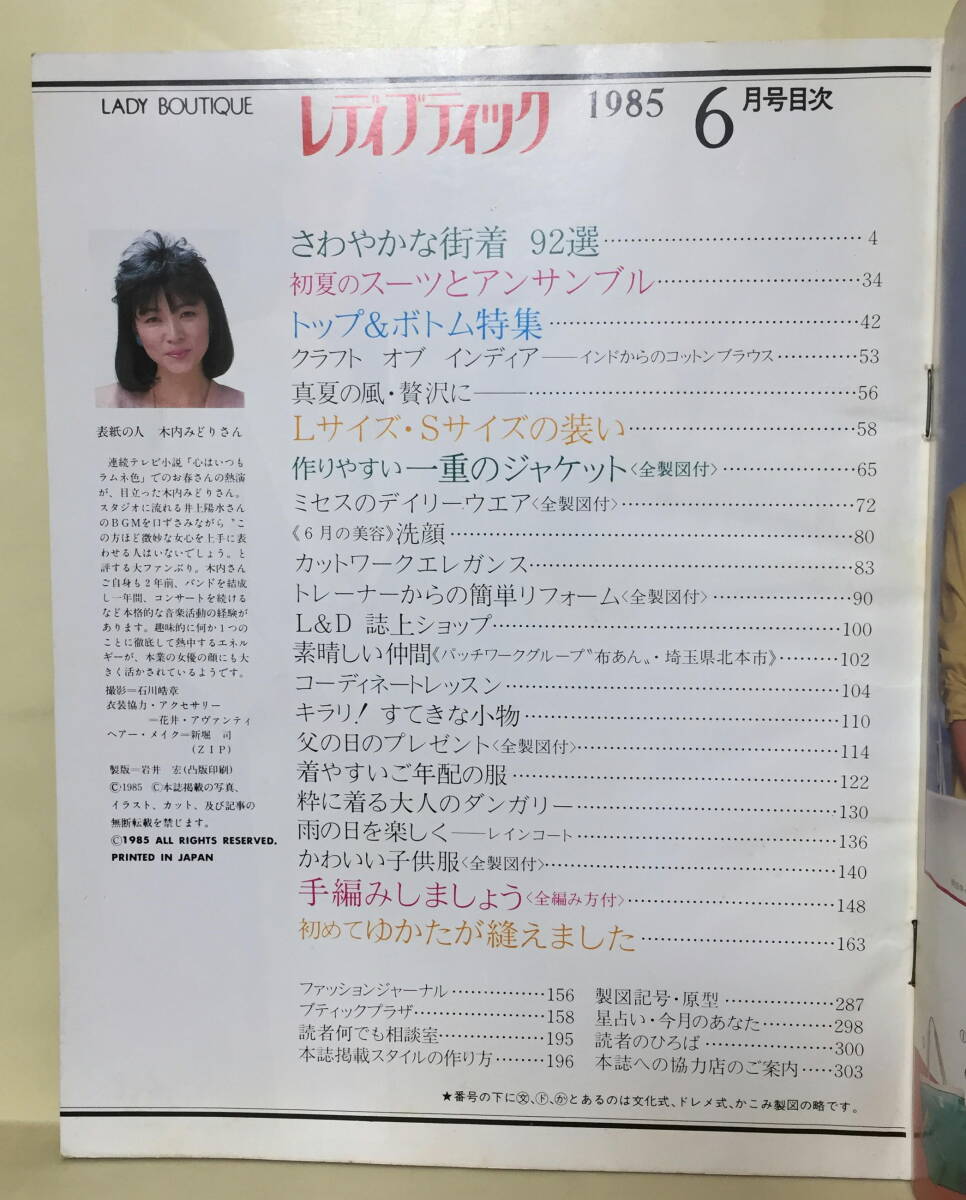 LADY BOUTIQUE
レディブティック
1985 6月号目次
表紙の人 木内みどりさん
連続テレビ小説「心はいつも
ラムネ色」でのお春さんの熱演
が、目立った木内みどりさん。
スタジオに流れる井上陽水さん
のBGMを口ずさみながら〝こ
の方ほど微妙な女心を上手に表
わせる人はいないでしょう。と
評する大ファンぶり。木内さん
ご自身も2年前、バンドを結成
し一年間、コンサートを続ける
など本格的な音楽活動の経験が
あります。趣味的に何か1つの
ことに徹底して熱中するエネル
ギーが、本業の女優の顔にも大
きく活かされているようです。
撮影=石川皓章
衣装協力・アクセサリー
=花井・アヴァンティ
ヘアー・メイク=新堀 司
(ZIP)
製版=岩井 宏(凸版印刷)
©1985 ©本誌掲載の写真、
イラスト、カット、及び記事の
無断転載を禁じます。
©1985 ALL RIGHTS RESERVED.
PRINTED IN JAPAN
さわやかな街着 92選……………………4
初夏のスーツとアンサンブル……………………34
トップ&ボトム特集……………………42
クラフト オブ インディア――インドからのコットンブラウス…………53
真夏の風・贅沢に――……………………56
Lサイズ・Sサイズの装い……………………58
作りやすい一重のジャケット〈全製図付〉……………65
ミセスのデイリーウエア〈全製図付〉……………………72
《6月の美容》洗顔……………………80
カットワークエレガンス……………………83
トレーナーからの簡単リフォーム〈全製図付〉……………90
L&D 誌上ショップ……………………100
素晴しい仲間《パッチワークグループ〝布あん〟・埼玉県北本市》………102
コーディネートレッスン……………………104
キラリ! すてきな小物……………………110
父の日のプレゼント〈全製図付〉……………………114
着やすいご年配の服……………………122
粋に着る大人のダンガリー……………………130
雨の日を楽しく――レインコート……………………136
かわいい子供服〈全製図付〉……………………140
手編みしましょう〈全編み方付〉……………………148
初めてゆかたが縫えました……………………163
ファッションジャーナル……………156
ブティックプラザ…………………158
読者何でも相談室……………195
本誌掲載スタイルの作り方………196
製図記号・原型……………287
星占い・今月のあなた…………298
読者のひろば…………………300
本誌への協力店のご案内……303
★番号の下に㊛、㋣、㋕とあるのは文化式、ドレメ式、かこみ製図の略です。